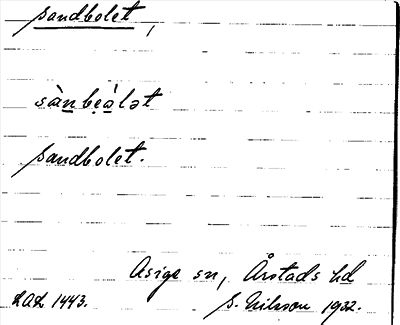 sandbolet,
sàn̲be̤à̲lət
sandbolet.
Asige sn, Årstads hd
LAL 1443. S. Nilsson 1932.